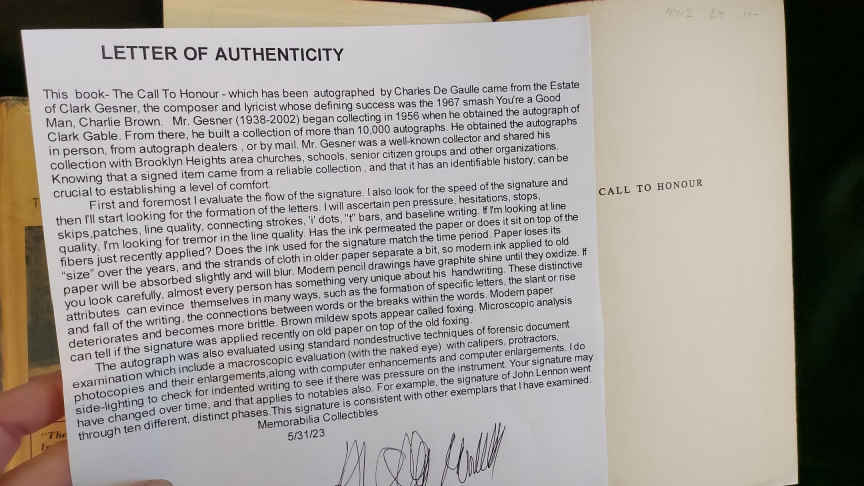 LETTER OF AUTHENTICITY
This book- The Call To Honour - which has been autographed by Charles De Gaulle came from the Estate
of Clark Gesner, the composer and lyricist whose defining success was the 1967 smash You're a Good
Man, Charlie Brown. Mr. Gesner (1938-2002) began collecting in 1956 when he obtained the autograph of
Clark Gable. From there, he built a collection of more than 10,000 autographs. He obtained the autographs
in person, from autograph dealers , or by mail. Mr. Gesner was a well-known collector and shared his
collection with Brooklyn Heights area churches, schools, senior citizen groups and other organizations.
Knowing that a signed item came from a reliable collection , and that it has an identifiable history, can be
crucial to establishing a level of comfort.
First and foremost I evaluate the flow of the signature. I also look for the speed of the signature and
then I'll start looking for the formation of the letters. I will ascertain pen pressure, hesitations, stops,
skips,patches, line quality, connecting strokes, 'i' dots, "t" bars, and baseline writing. If I'm looking at line
quality, I'm looking for tremor in the line quality. Has the ink permeated the paper or does it sit on top of the
fibers just recently applied? Does the ink used for the signature match the time period. Paper loses its
"size" over the years, and the strands of cloth in older paper separate a bit, so modern ink applied to old
paper will be absorbed slightly and will blur. Modern pencil drawings have graphite shine until they oxidize. If
you look carefully, almost every person has something very unique about his handwriting. These distinctive
attributes can evince themselves in many ways, such as the formation of specific letters, the slant or rise
and fall of the writing, the connections between words or the breaks within the words. Modern paper
deteriorates and becomes more brittle. Brown mildew spots appear called foxing. Microscopic analysis
can tell if the signature was applied recently on old paper on top of the old foxing.
The autograph was also evaluated using standard nondestructive techniques of forensic document
examination which include a macroscopic evaluation (with the naked eye) with calipers, protractors,
photocopies and their enlargements,along with computer enhancements and computer enlargements. I do
side-lighting to check for indented writing to see if there was pressure on the instrument. Your signature may
have changed over time, and that applies to notables also. For example, the signature of John Lennon went
through ten different, distinct phases.This signature is consistent with other exemplars that I have examined.
Memorabilia Collectibles
5/31/23
CALL TO HONOUR
"The